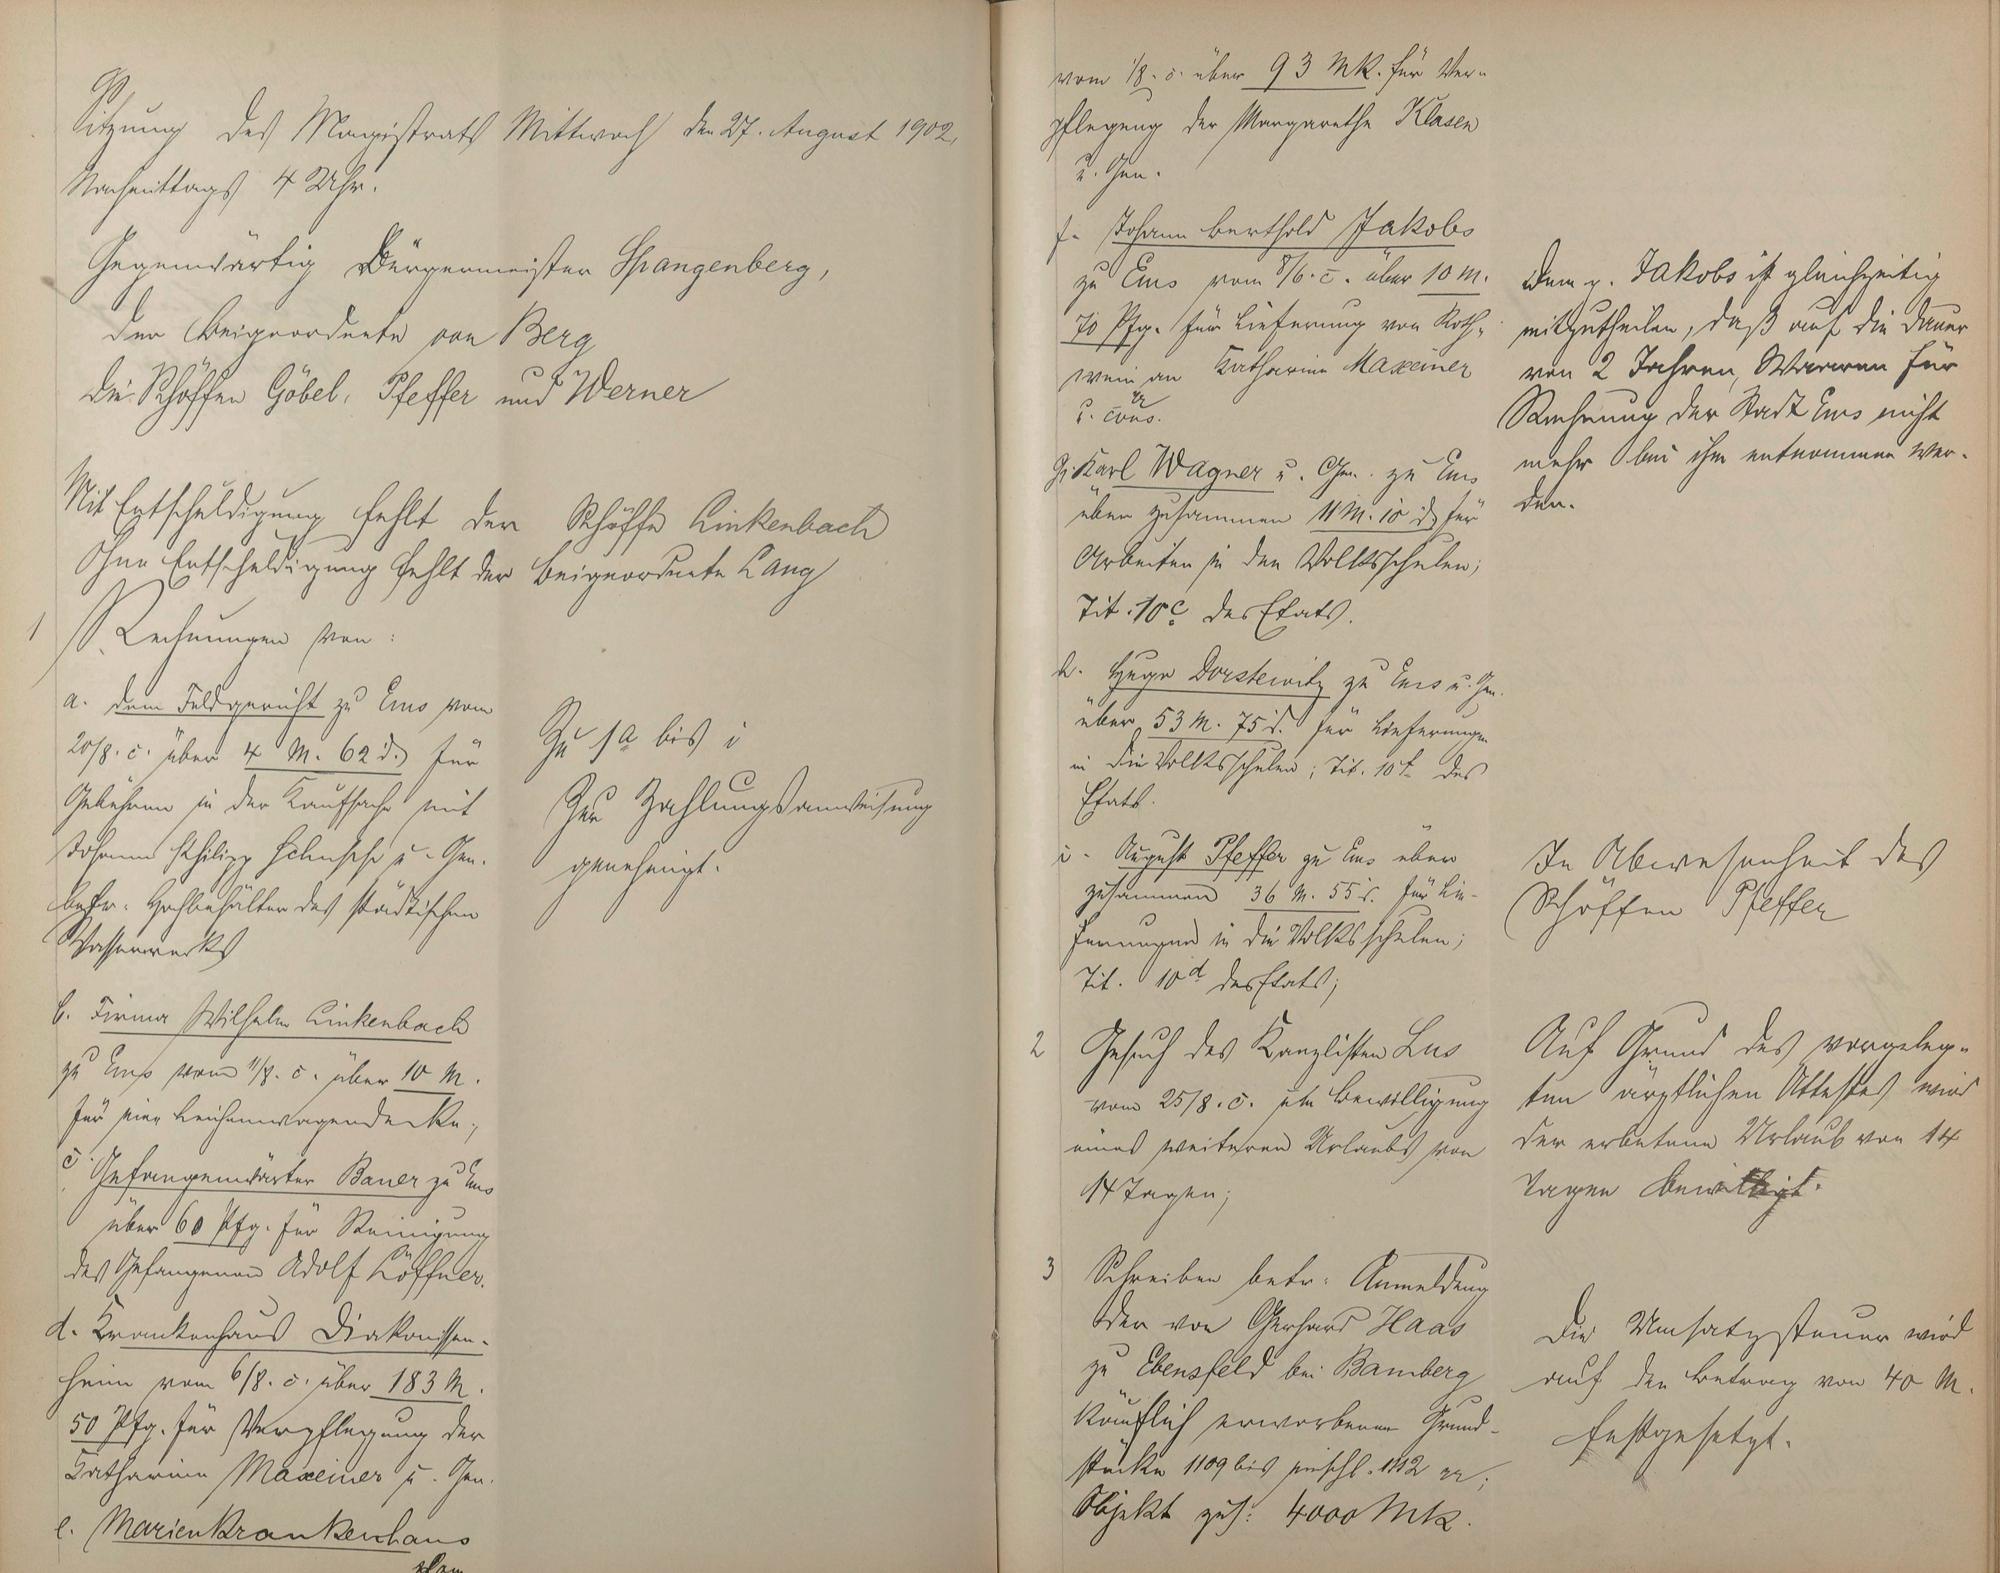 Sitzung des Magistrats Mittwoch den 27. August 1902,
Nachmittags 4 Uhr.
Gegenwärtig Bürgermeister Spangenberg,
der Beigeordnete von Berg
die Schöffen Göbel, Pfeffer und Werner
Mit Entschuldigung fehlt der Schöffe Linkenbach
Ohne Entschuldigung fehlt der Beigeordnete Lang
1 Rechnungen von:
a. dem Feldgericht zu Ems vom
20/8. c. über 4 M. 62 d. für
Gebühren in der Kaufsache mit
Johann Philipp u. Gen.
betr. Hochbehälter des städtischen
Wasserwerks
b. Firma Wilhelm Linkenbach
zu Ems vom 1/8. c. über 10 M.
für eine Leichenwagendecke;
c. Gefangenwärter Bauer zu Ems
über 60 Pfg. für Reinigung
des Gefangenen Adolf Löffner.
d. Krankenhaus Diakonissen-
heim vom 6/8. c. über 183 M.
50 Pfg. für Verpflegung der
Katharine Maxeiner u. Gen.
e. Marienkrankenhaus
Zu 1a bis i
Zur Zahlungsanweisung
genehmigt.
vom 1/8. c. über 93 Mk. für Ver-
pflegung der Margarethe Klasen
u. Gen.
f. Johann Berthold Jakobs
zu Ems vom 8/6. c. über 10 M.
70 Pfg. für Lieferung von Roth-
wein an Katharine Maxeiner
u. cons.
g. Karl Wagner u. Gen. zu Ems
über zusammen 11 M. 10 d. für
Arbeiten in den Volksschulen;
Tit. 10c des Etats.
h. Hugo Dorsteiwitz zu Ems u. Gen.
über 53 M. 75 d. für Lieferungen
in die Volksschulen; Tit. 10f des
Etats.
i. August Pfeffer zu Ems über
zusammen 36 M. 55 d. für Lie-
ferungen in die Volksschulen;
Tit. 10d des Etats;
2 Gesuch des Kanzlisten Lus
vom 25/8. c. um Bewilligung
eines weiteren Urlaubs von
14 Tagen;
3 Schreiben betr. Anmeldung
der von Gerhard Haas
zu Ebensfeld bei Bamberg
käuflich erworbenen Grund-
stücke 1109 bis einschl. 1112
Objekt zus: 4000 Mk.
Dem p. Jakobs ist gleichzeitig
mitzutheilen, daß auf die Dauer
von 2 Jahren, Waaren für
Rechnung der Stadt Ems nicht
mehr bei ihm entnommen wer-
den.
In Abwesenheit des
Schöffen Pfeffer
Auf Grund des vorgeleg-
ten ärztlichen Attestes wird
der erbetene Urlaub von 14
Tagen bewilligt.
Die Umsatzsteuer wird
auf den Betrag von 40 M.
festgesetzt.